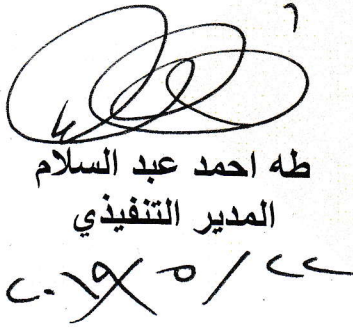 طه احمد عبد السلام
المدير التنفيذي
٢٠١٩/٥/٢٢